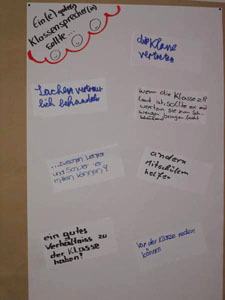 Ein(e) gute(r)
Klassensprecher(in)
sollte...
die Klasse
vertreten
Sachen vertrau-
lich behandeln
wenn die Klasse zu
laut ist, sollte er
zwischen Lehrer
und Schüler
anderen
Mitschülern
helfen
ein gutes
Verhältniss zu
der Klasse
haben?
Vor der Klasse reden
können